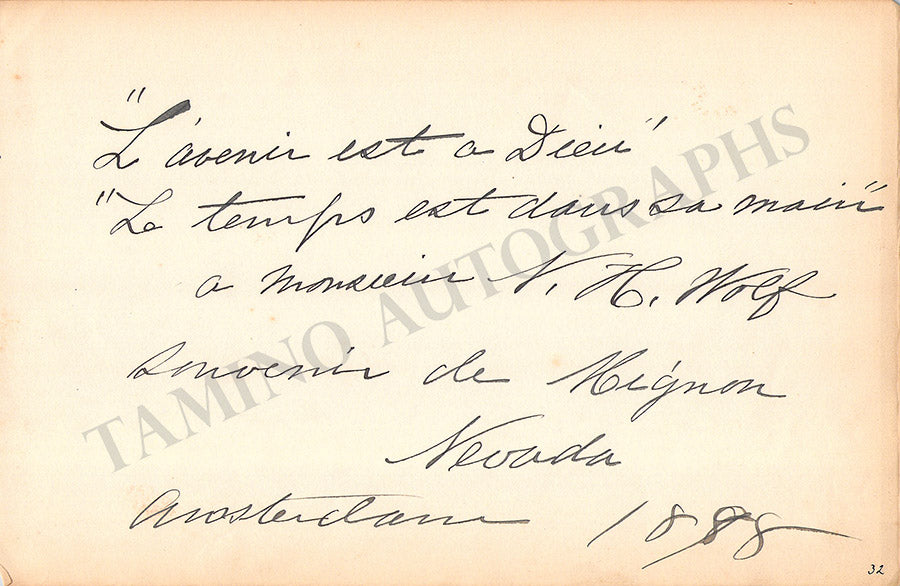 "L'avenir est a Dieu"
"Le temps est dans sa main"
a monsieur N. H. Wolf
souvenir de Mignon
Nevada
Amsterdam 1888
TAMINO AUTOGRAPHS
32